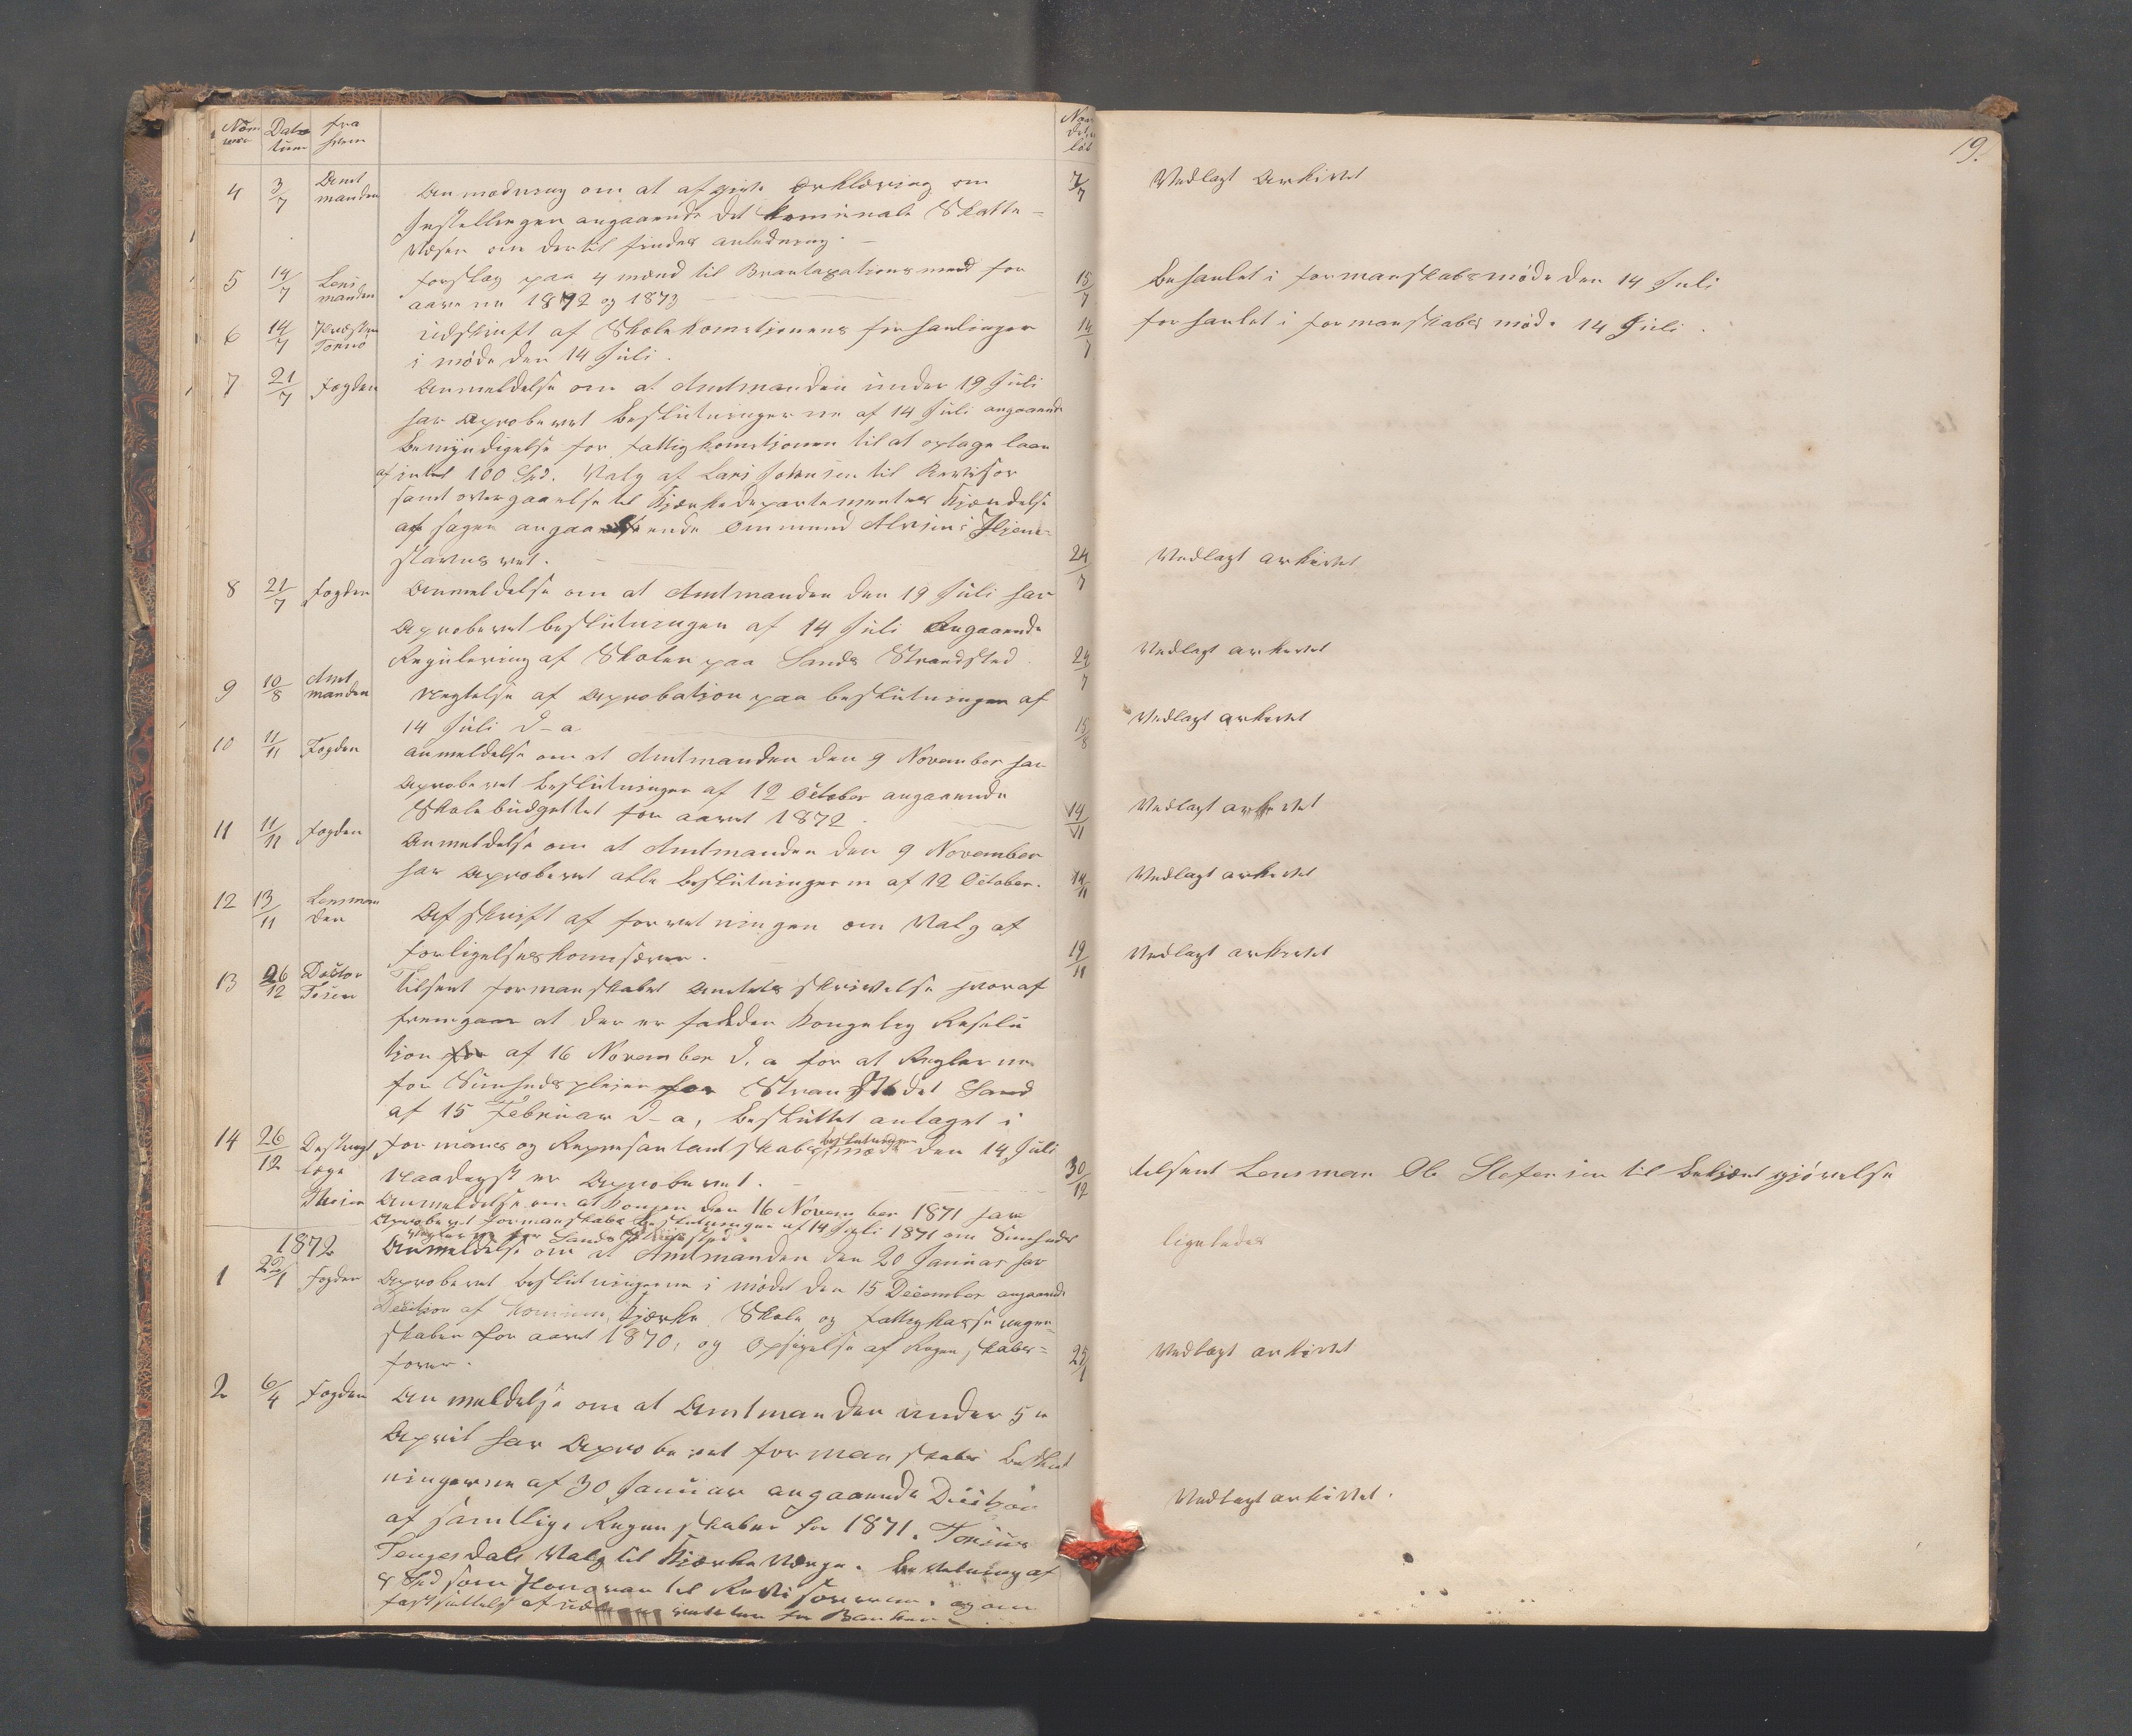 Nom mer
Datum
fra hvem
Naar det er lóst
19.
4 3/7 Amtmanden Anmodning om at afgive Erklæring om 7/7 Vedlagt Arkivet
Instellingen angaaende det komunale Skatte-
væsen om dertil findes anledning. —
5 14/7 Lensmanden forslag paa 4 mænd til Brantaxationsmend for
aarene 1872 og 1873 15/7 Behanlet i formanskabsmóde den 14 Juli
6 14/7 Presten Tornó Udskrift af Skolekomitjonens forhanlinger 14/7 forhanlet i formanskabs móde 14 Juli.
i móde den 14 Juli.
7 21/7 fogden Anmeldelse om at Amtmanden under 19 Juli
har Aproberet Beslutningerne af 14 Juli angaaende
Bemyndigelse for fattigkomitjonen til at optage laan
af intel 100 Spd. Valg af Lars Johnsen til Revisor
samt overgaaelse til Kjerkedepartementes Kjendelse
af sagen angaaende Ommund Alvseni Hjem-
stavnsret. — 24/7 Vedlagt arkivet
8 21/7 fogden Anmeldelse om at Amtmanden den 19 Juli har
Aproberet beslutningen af 14 Juli Angaaende
Regulering af Skolen paa Sands Strandsted. 24/7 Vedlagt arkivet
9 10/8 Amtmanden negtelse af Aprobatjon paa beslutningen af
14 Juli d-a. 15/8 Vedlagt arkivet
10 11/11 Fogden anmeldelse om at Amtmanden den 9 November har
Aproberet beslutningen af 12 October angaaende
Skolebudgettet for aaret 1872. 14/11 Vedlagt arkivet
11 11/11 fogden Anmeldelse om at Amtmanden den 9 November
har Aproberet alle beslutningerne af 12 October. 14/11 Vedlagt arkivet
12 13/11 Lensmanden Afskrift af forretningen om Valg af
forligelseskomisærer. 19/11 Vedlagt arkivet
13 26/12 Doctor Tisen Tilsent formanskabet Amtets skrivelse hvoraf
fremgaar at der er falden kongelig Resolu
tjon for af 16 November d. a for at Reglerne
for Sunhedsplejen for Strandstedet Sand
af 15 Februar d-a, besluttet antaget i
formans og Represantantskabs beslutningen móde den 14 Juli
naadegst er Aproberet. — 30/12 tilsent Lensman Ole Stefensen til bekjent gjórelse
14 26/12 Destrugt læge Thisen Anmeldelse om at kongen den 16 November 1871 har
Aproberet formanskabs beslutningen af 14 Juli 1871 om Sunheds
reglerne for Sands Strandsted. ligeledes
1872
1 22/1 fogden Anmeldelse om at Amtmanden den 20 Januar har
Aproberet beslutningerne i mode den 15 December angaaende
Decitjon af Komune, kjerke Skole og fattigkasse regen-
skaber for aaret 1870, og Opsigelse af Regenskabs=
forer. 25/1 Vedlagt arkivet
2 6/4 fogden Anmeldelse om at Amtmanden under 5te
April har Aproberet formanskabs beslut
ningerne af 30 Januar angaaende Decitjon
af samtlige Regenskaber for 1871. Tonius
Tengesdals Valg til kjerke verge. Bevilning af
8 Spd som Honorar til Revisorerne. og om
fastsettelse af Vedlagt arkivet.